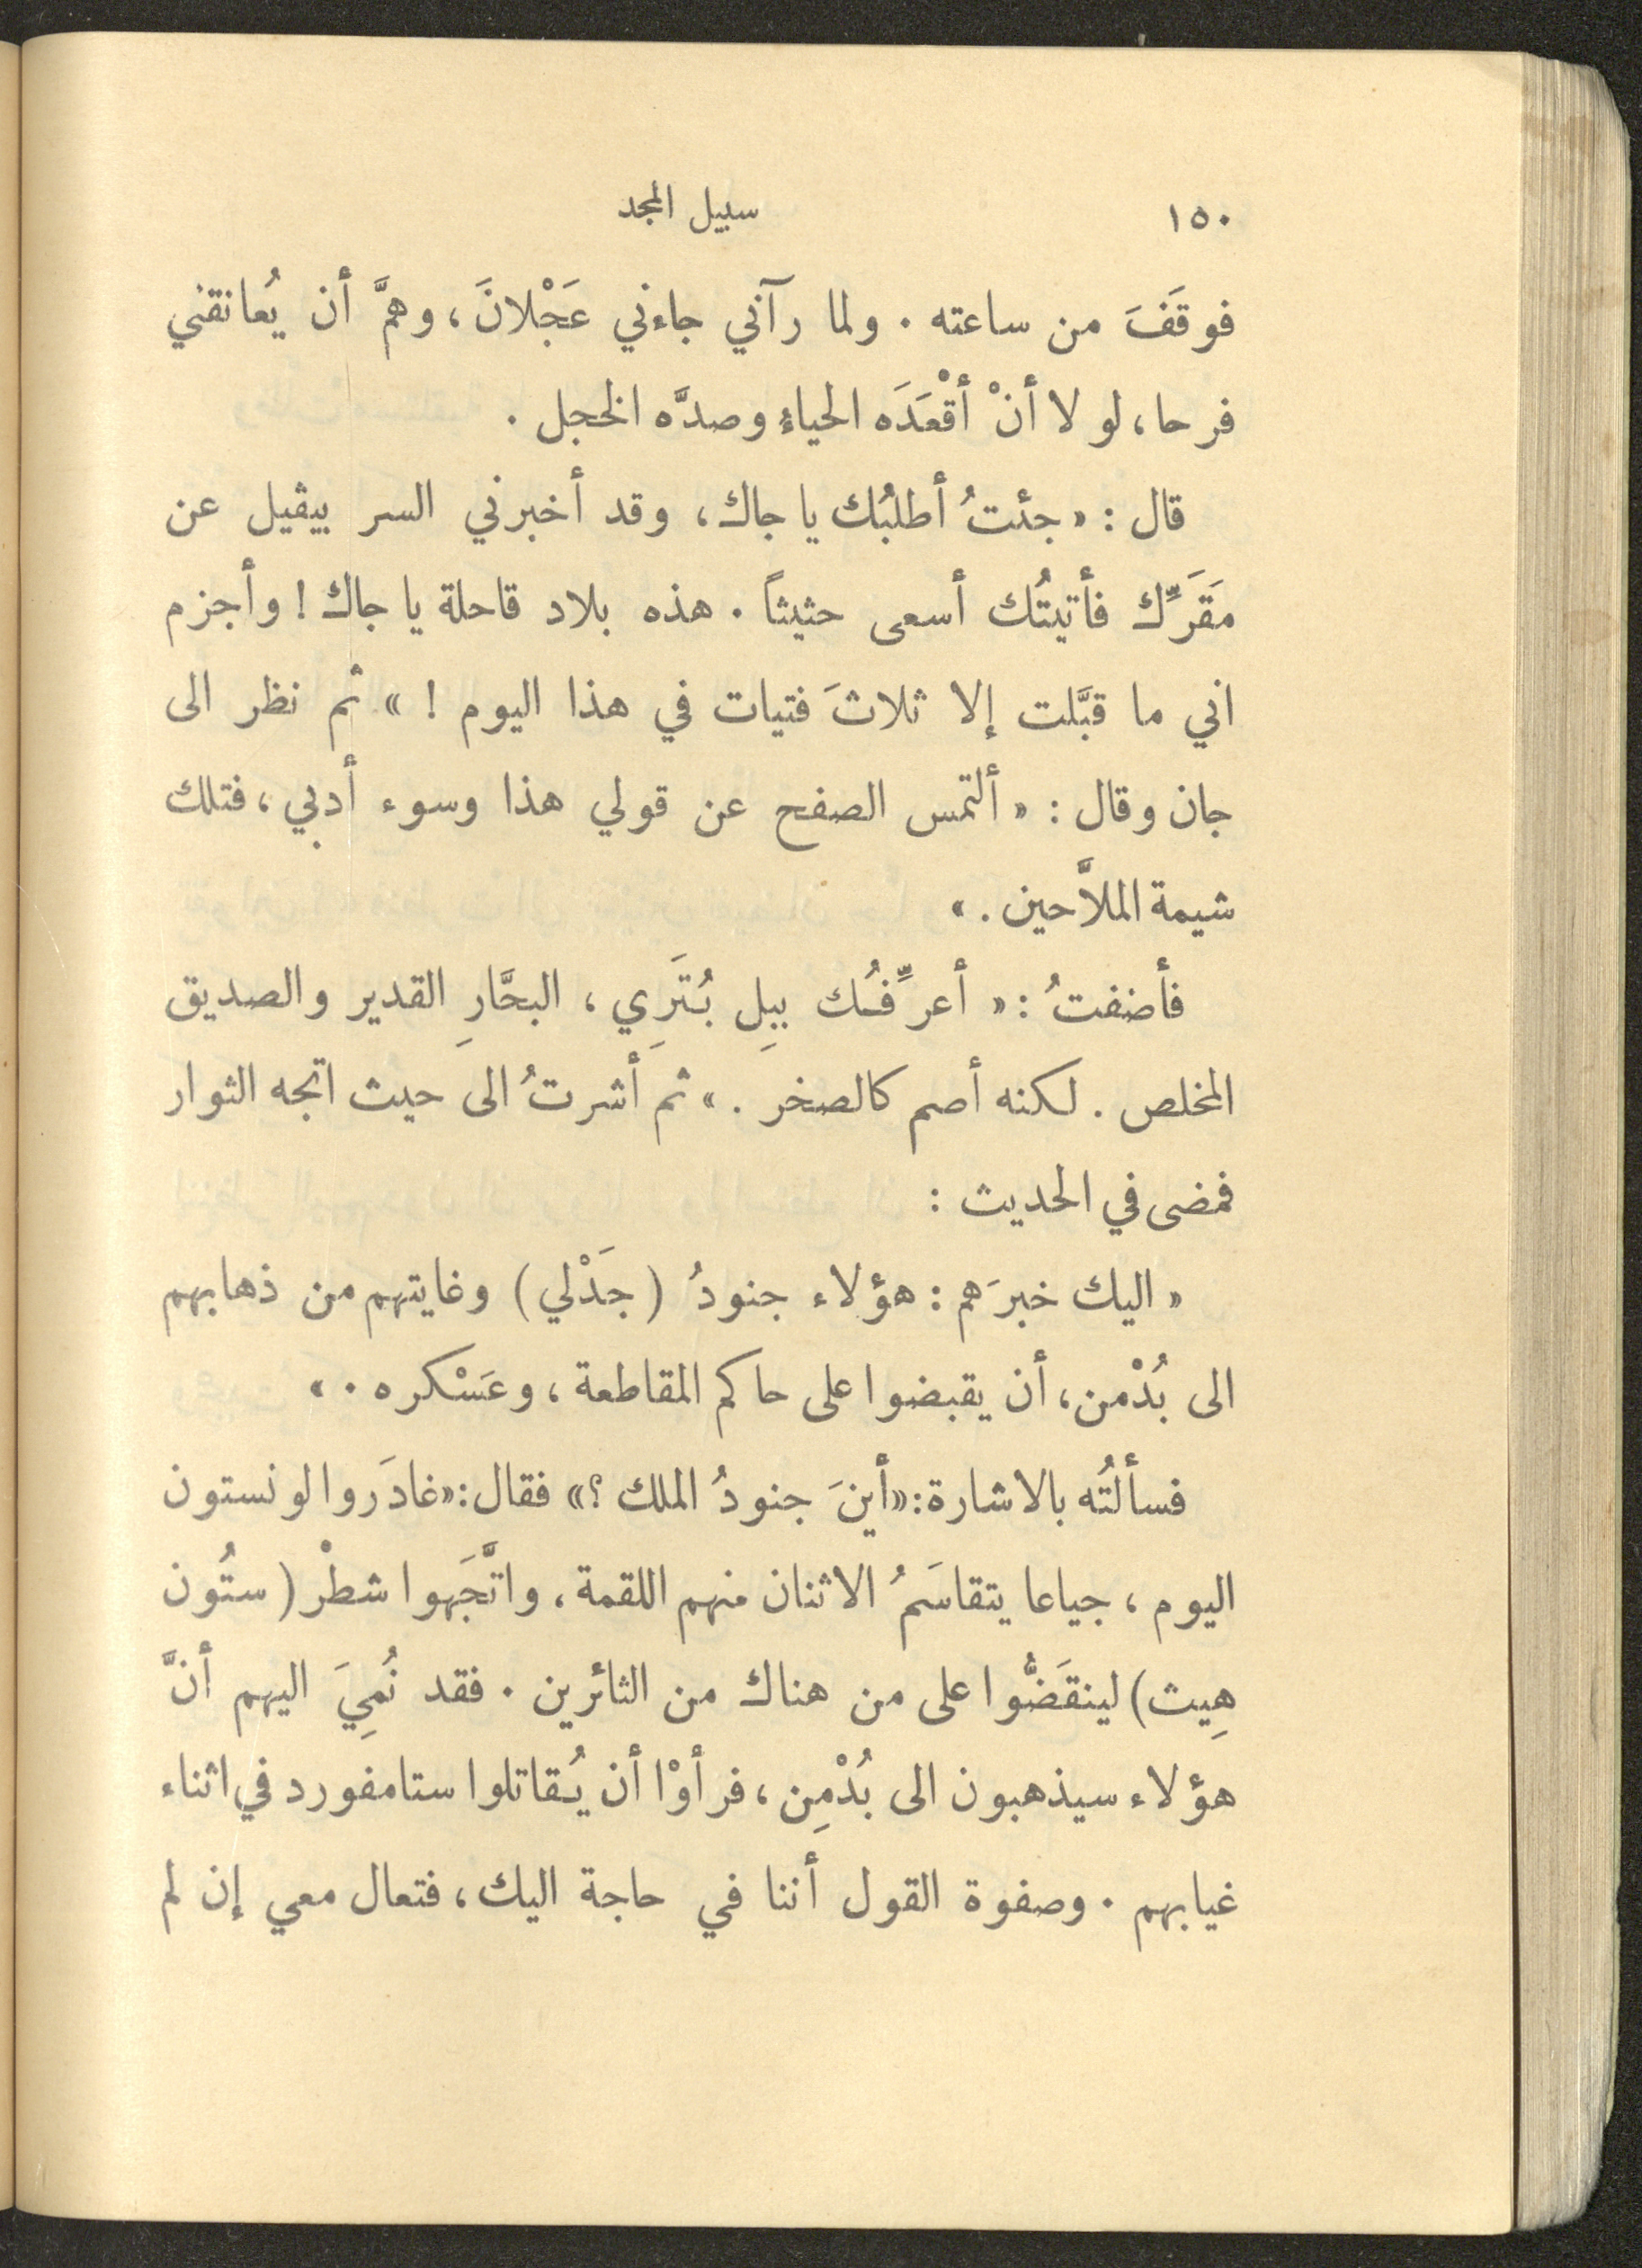 ١٥٠
سبيل المجد
فوقَفَ من ساعته . ولما رآني جاءني عَجْلانَ ، وهمَّ أن يُعانقني
فرحا ، لو لا أنْ أقْعَدَه الحياءُ وصدَّه الخجل .
قال : « جئتُ أطلبُك يا جاك ، وقد أخبرني السر بيڤيل عن
مَقَرِّك فأتيتُك أسعى حثيثاً . هذه بلاد قاحلة يا جاك ! وأجزم
اني ما قبَّلت إلا ثلاثَ فتيات في هذا اليوم ! » ثم نظر الى
جان وقال : « ألتمس الصفح عن قولي هذا وسوء أدبي ، فتلك
شيمة الملاَّحين . »
فأضفتُ : « أعرِّفُك بيلِ بُتَرِي ، البحَّارِ القدير والصديق
المخلص . لكنه أصم كالصخر . » ثم أشرتُ الى حيث اتجه الثوار
فمضى في الحديث :
« اليك خبرَهم : هؤلاء جنودُ ( جَدْلي ) وغايتهم من ذهابهم
الى بُدْمن ، أن يقبضوا على حاكم المقاطعة ، وعَسْكره . »
فسألتُه بالاشارة : « أينَ جنودُ الملك ؟ » فقال : « غادَروا لونستون
اليوم ، جياعا يتقاسَمُ الاثنان منهم اللقمة ، واتَّجَهوا شطْر ( ستُون
هِيث ) لينقَضُّوا على من هناك من الثائرين . فقد نُمِيَ اليهم أنَّ
هؤلاء سيذهبون الى بُدْمِن ، فرأوْا أن يُقاتلوا ستامفورد في اثناء
غيابهم . وصفوة القول أننا في حاجة اليك ، فتعال معي إن لم